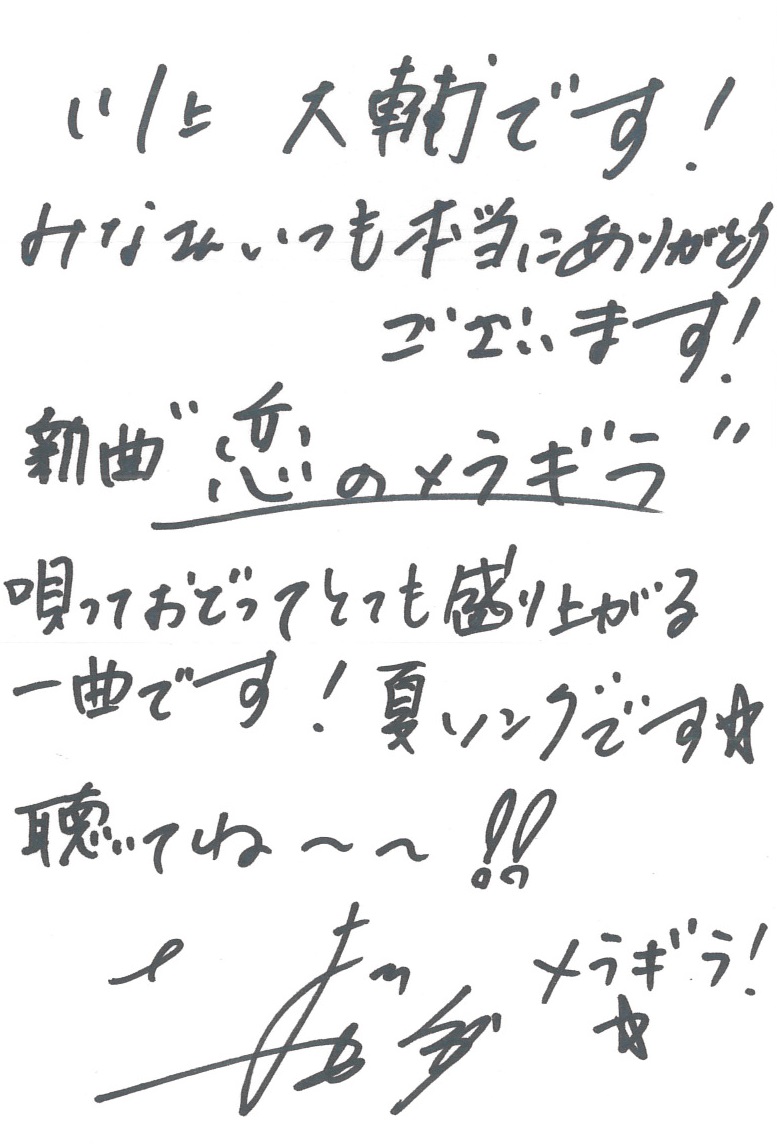 川上 大輔です!
みなさんいつも本当にありがとう
ございます!
新曲"恋のメラギラ"
唄っておどってとっても盛り上がる
一曲です!夏ソングです☆
聴いてね〜〜!!
メラギラ!
☆